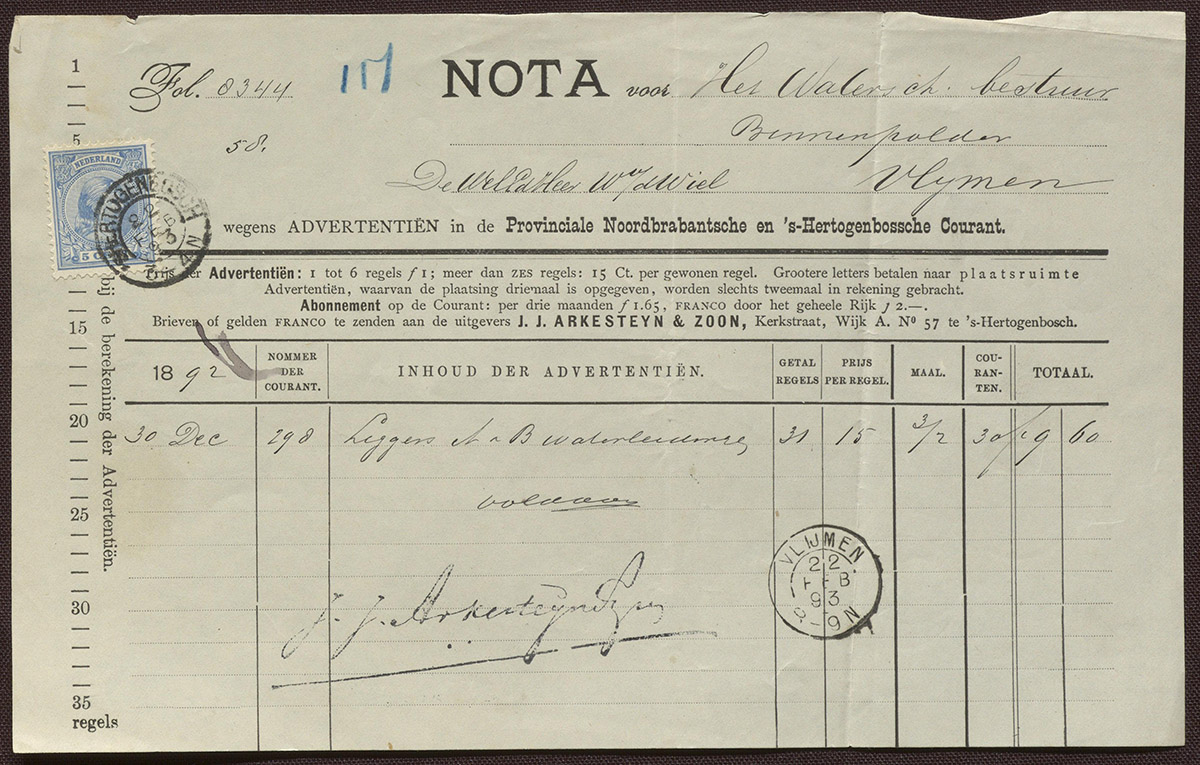 Fol. 8344 117 NOTA voor Het Watersch. bestuur
58. Binnenpolder
De WelEdHeer W v/d Wiel Vlymen
NEDERLAND
5 C
HERTOGENBOSCH
wegens ADVERTENTIËN in de Provinciale Noordbrabantsche en 's-Hertogenbossche Courant.
Prijs der Advertentiën: 1 tot 6 regels f 1; meer dan ZES regels: 15 Ct. per gewonen regel. Groote letters betalen naar plaatsruimte
Advertentiën, waarvan de plaatsing driemaal is opgegeven, worden slechts tweemaal in rekening gebracht.
Abonnement op de Courant: per drie maanden f 1.65, FRANCO door het geheele Rijk f 2.—.
Brieven of gelden FRANCO te zenden aan de uitgevers J. J. ARKESTEYN & ZOON, Kerkstraat, Wijk A. No 57 te 's-Hertogenbosch.
1892 NOMMER DER COURANT. INHOUD DER ADVERTENTIËN. GETAL REGELS PRIJS PER REGEL. MAAL. COU-RAN-TEN. TOTAAL.
30 Dec 298 Leggers A & B waterleiding 31 15 3/2 30/19 60
voldaan
J. J. Arkesteyn & Zoon
VLIJMEN
22
FEB
93
8-9N
1
5
15
20
25
30
35
regels
bij de berekening der Advertentiën.